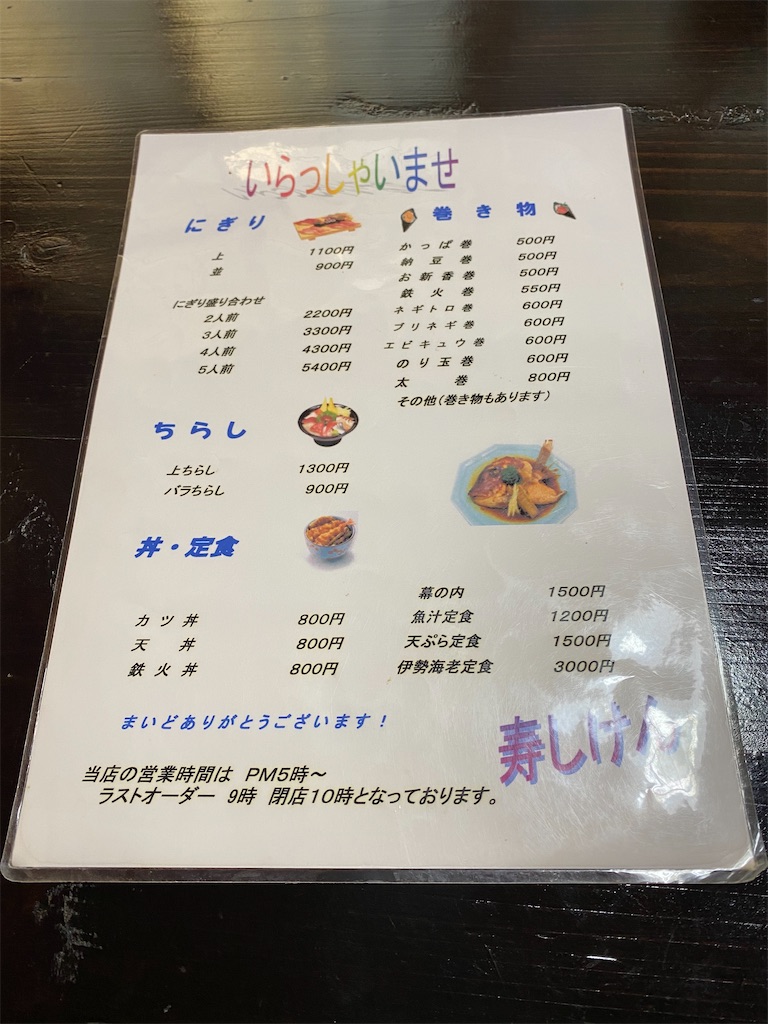 いらっしゃいませ
にぎり
上 1100円
並 900円
にぎり盛り合わせ
2人前 2200円
3人前 3300円
4人前 4300円
5人前 5400円
巻き物
かっぱ巻 500円
納豆巻 500円
お新香巻 500円
鉄火巻 550円
ネギトロ巻 600円
ブリネギ巻 600円
エビキュウ巻 600円
のり玉巻 600円
太巻 800円
その他(巻き物もあります)
ちらし
上ちらし 1300円
バラちらし 900円
丼・定食
カツ丼 800円
天丼 800円
鉄火丼 800円
幕の内 1500円
魚汁定食 1200円
天ぷら定食 1500円
伊勢海老定食 3000円
まいどありがとうございます!
寿しけん
当店の営業時間は PM5時~
ラストオーダー 9時 閉店10時となっております。